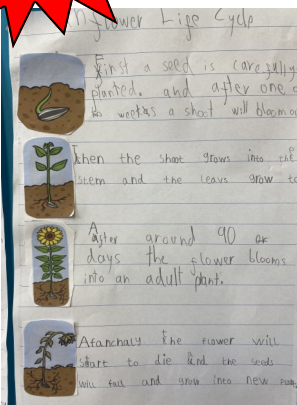 nflower Life Cycle
First a seed is carefully
planted. and after one o
to weeks a shoot will bloom o
then the shoot grows into the
stem and the leavs grow to
After around 90 or
days the flower blooms
into an adult plant.
Afanchaly the flower will
start to die and the seeds
will fall and grow into new